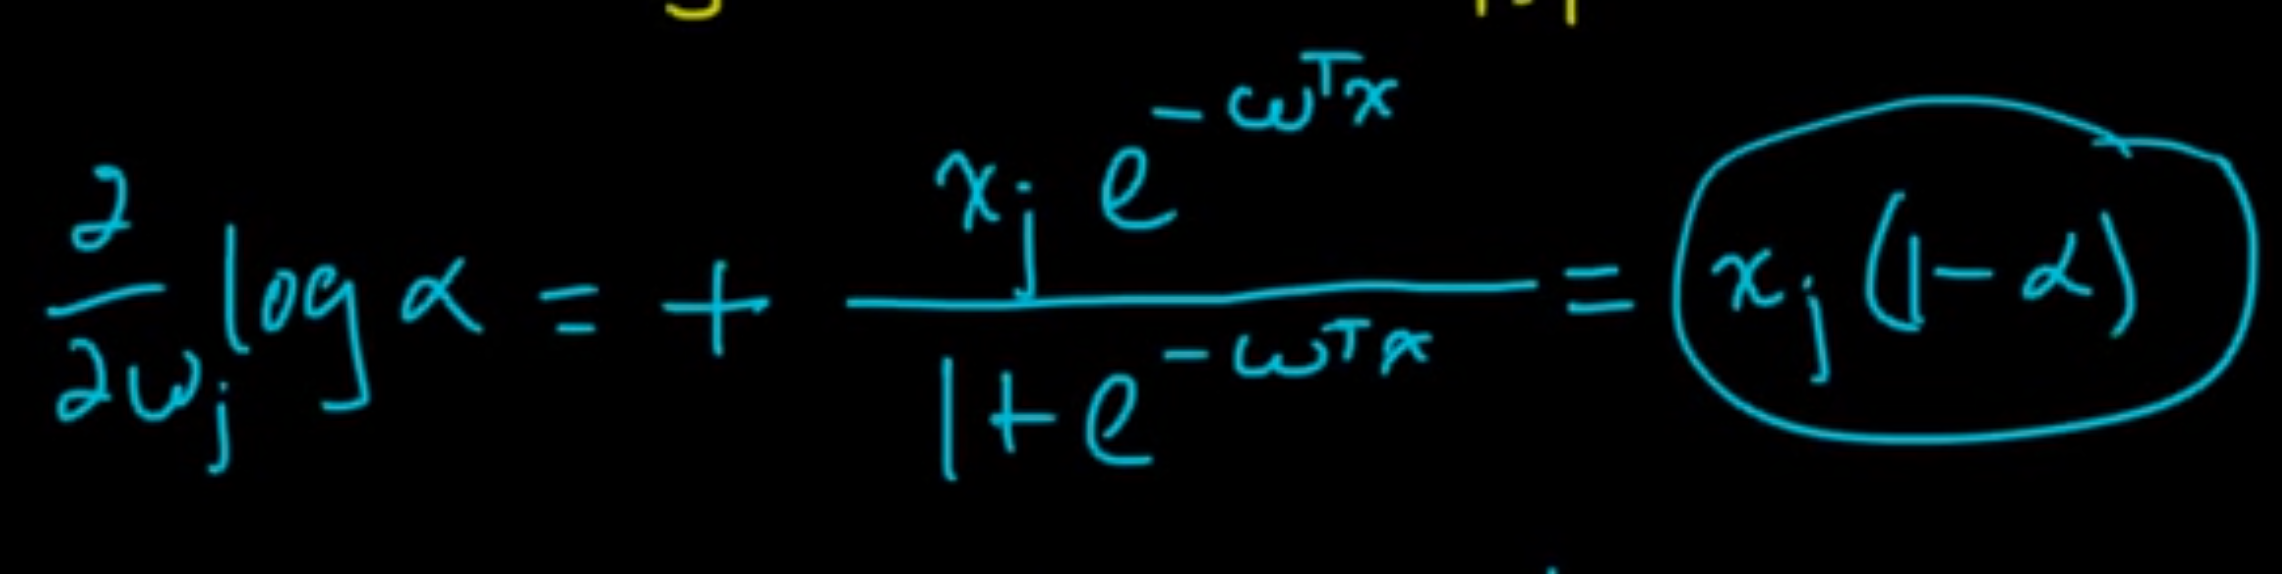 ∂/∂ω_j log α = + x_j e^{-ω^T x} / 1+e^{-ω^T x} = x_j (1-α)